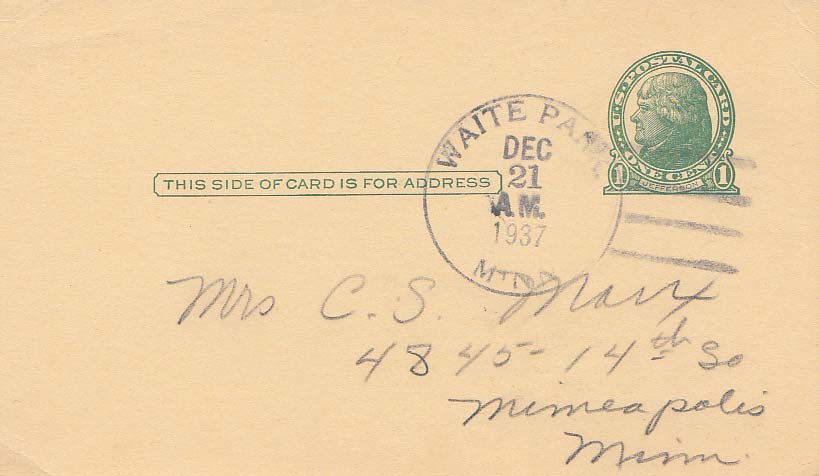 U.S. POSTAL CARD
ONE CENT
1 JEFFERSON 1
WAITE PARK
DEC
21
A.M.
1937
MINN
THIS SIDE OF CARD IS FOR ADDRESS
Mrs C. S. Marx
4845-14th So
Minneapolis
Minn.